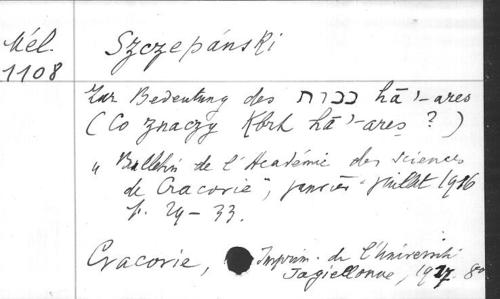 Mél. 1108
Szczepánski
Zur Bedeutung des ככרות hā'-ares
(Co znaczy Kbrt hā'-ares ?)
„Bulletin de l'Académie des sciences
de Cracovie", janvier-juillet 1916
p. 29-33.
Cracovie, Imprim. de l'Université
Jagiellonne, 1917. 8º